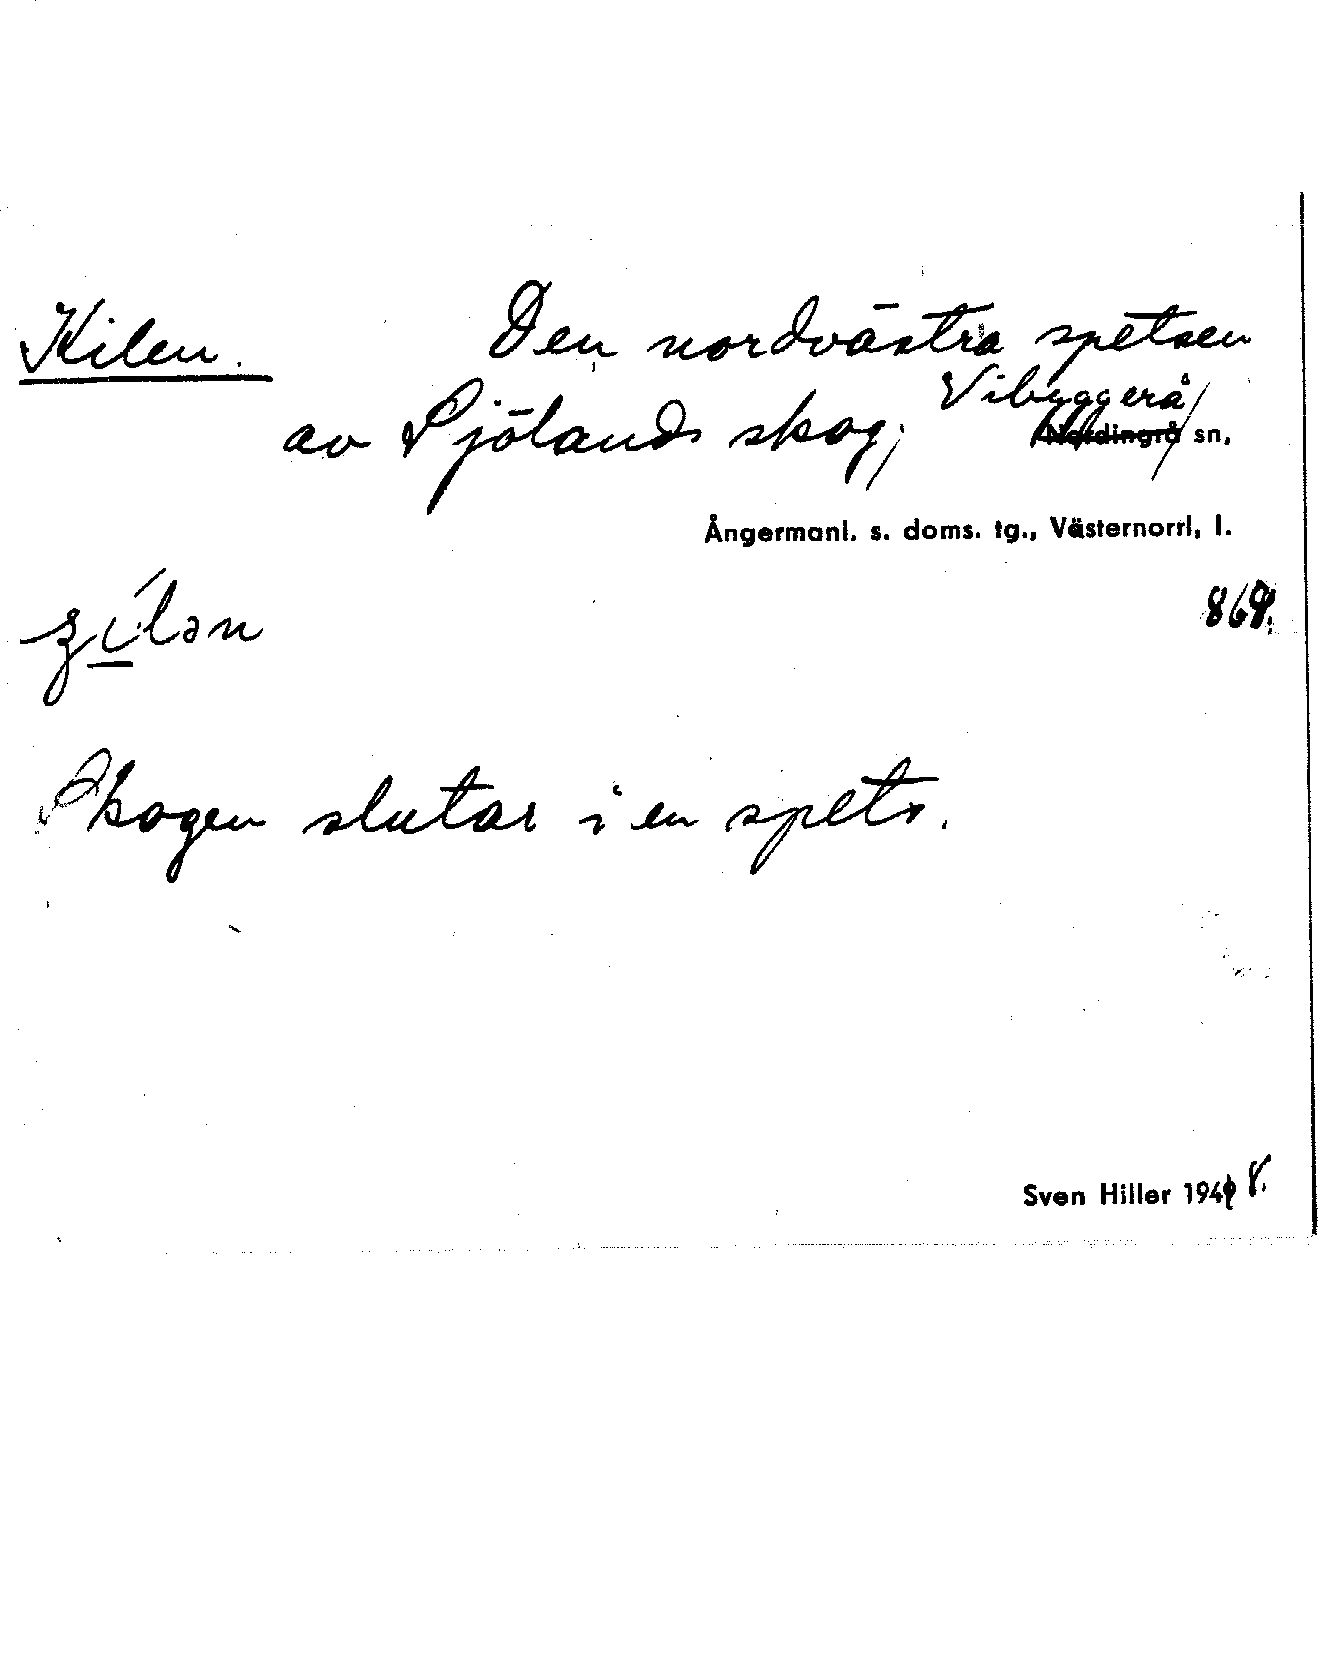 Kilen. Den nordvästra spetsen
av Sjölands skog; Vibyggerå
Nordingrå sn,
Ångermanl. s. doms. tg., Västernorrl, l.
868.
Skogen slutar i en spets.
Sven Hiller 194 8.